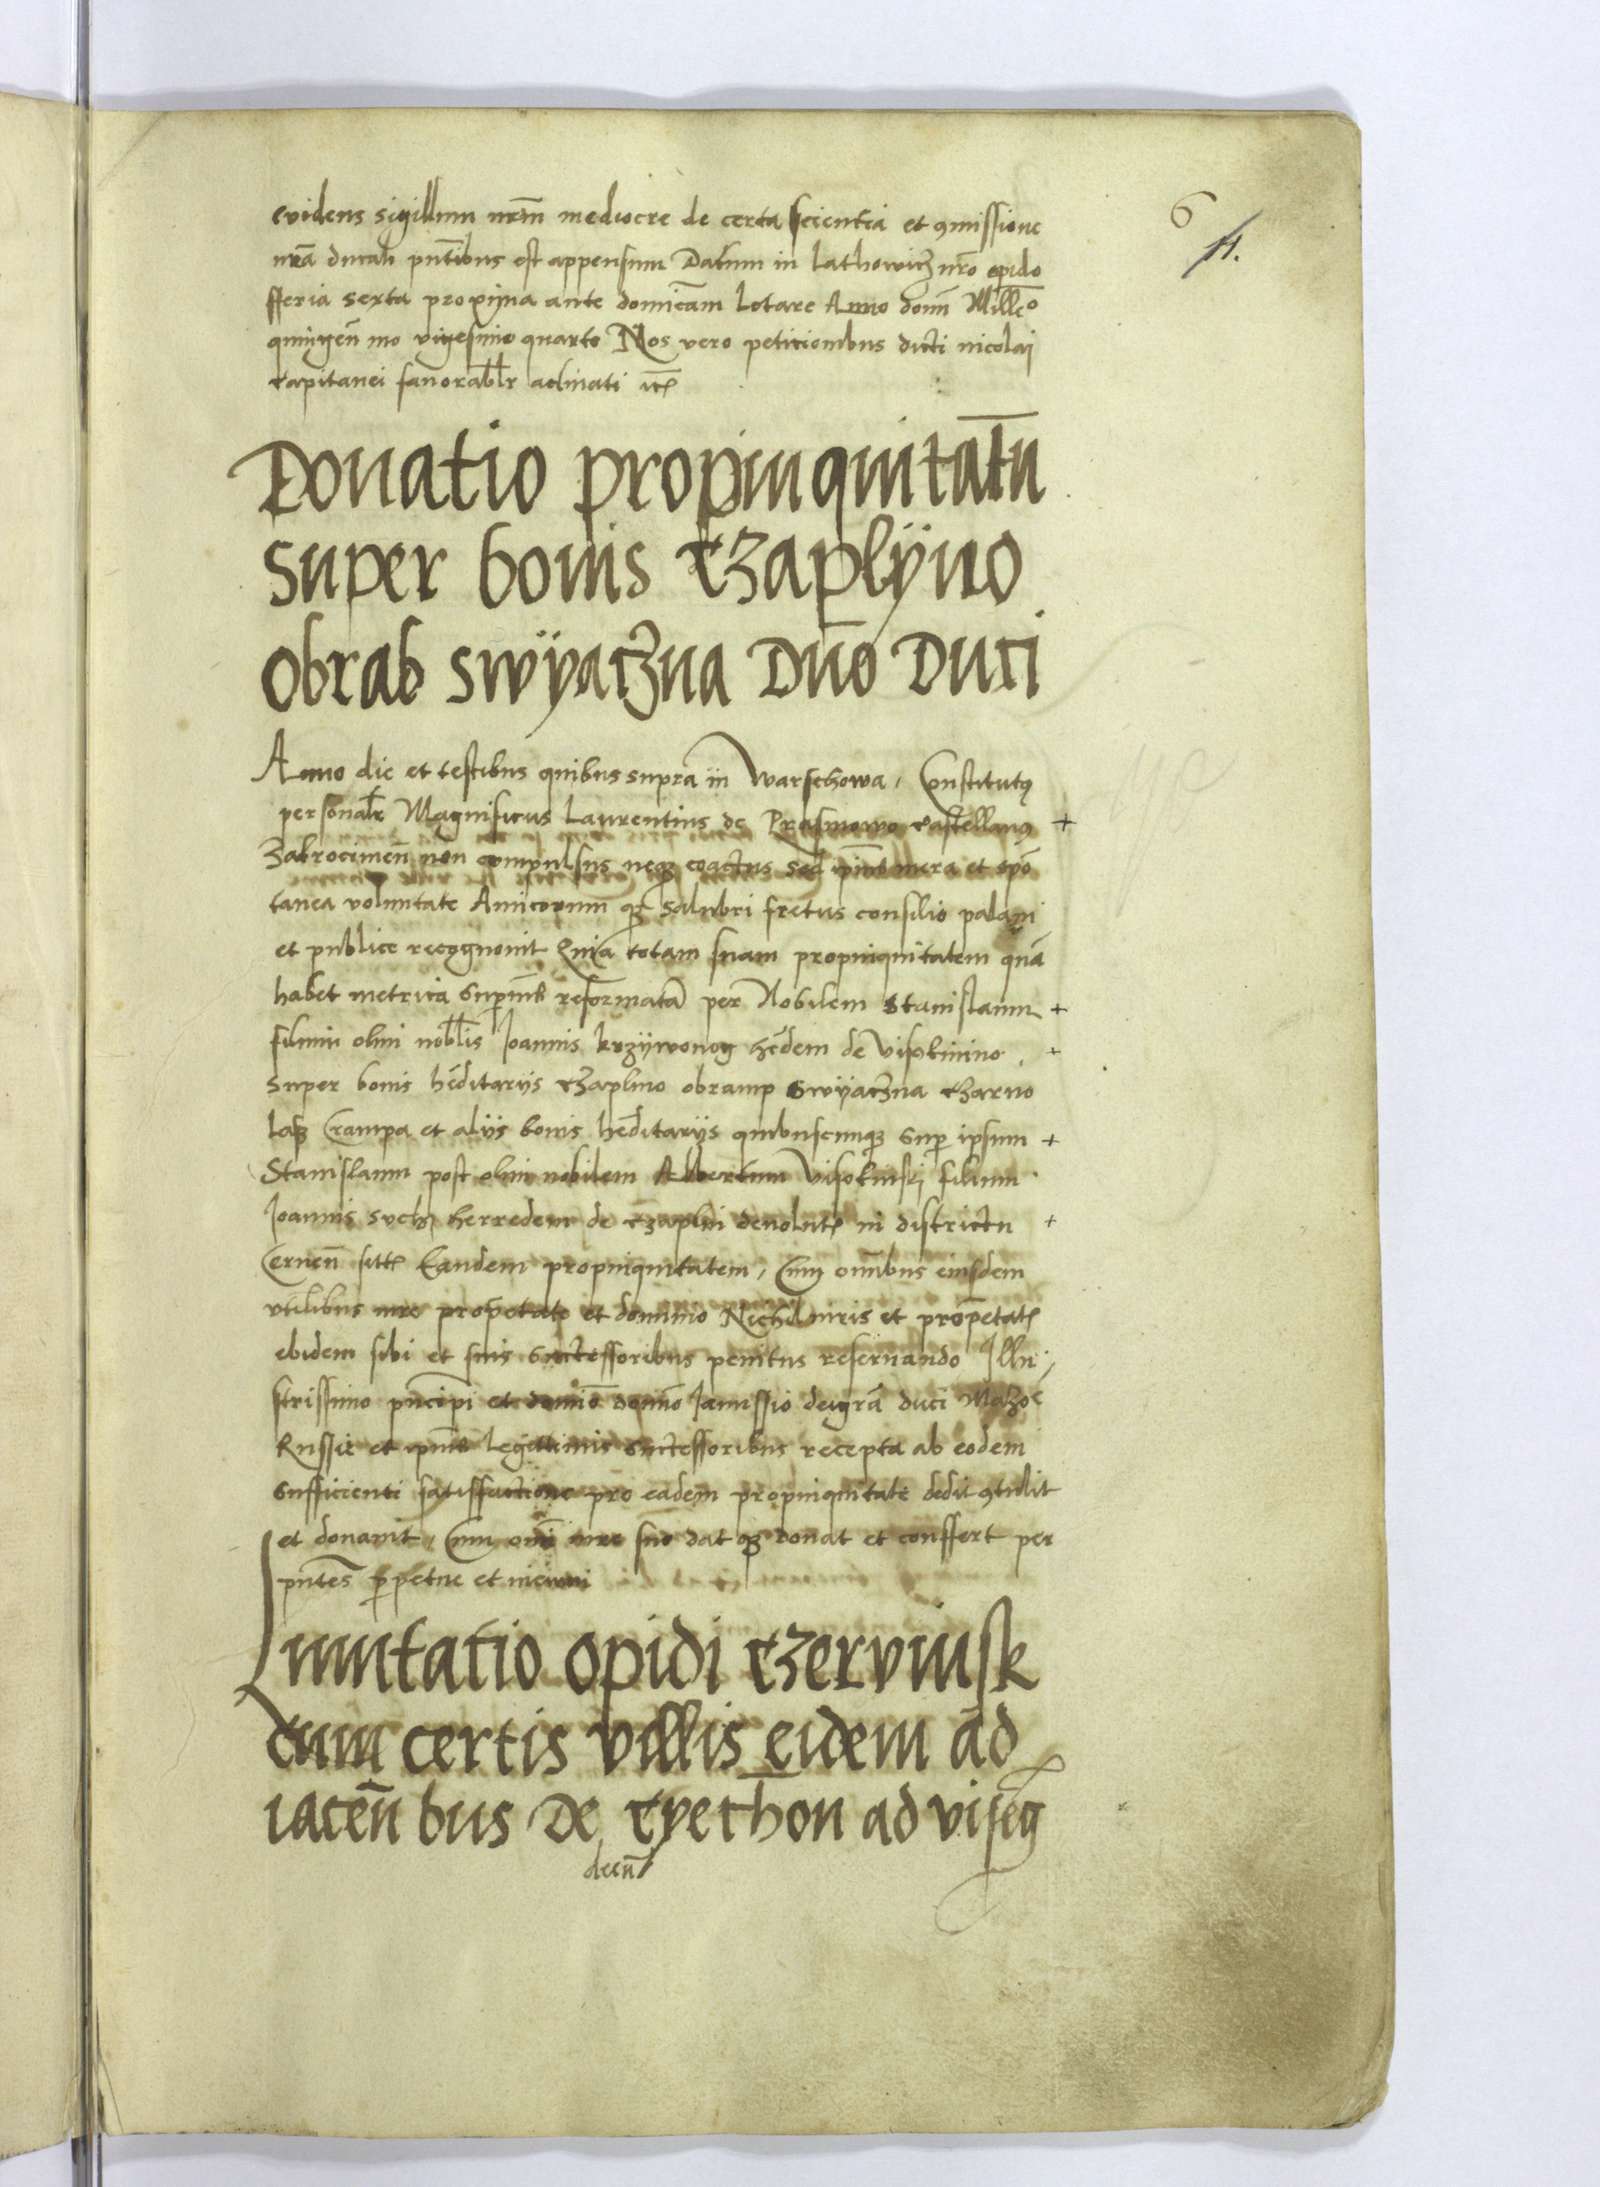 6
11.
evidens sigillum nrm̄ mediocre de certa scientia et ꝯmissione
nr̄a ducali pn̄tibus est appensum Datum in Lathowicz nr̄o opido
fferia sexta proxima ante domīcam Letare Anno domī Mill̄o
quingen̄ mo vigesimo quarto Nos vero peticionibus dicti nicolai
capitanei fauorabl̄r aclinati etc̄
Donatio propinquitatū
super bonis Czaplÿno
obrab swÿaczna Dn̄o Duci
Anno die et testibus quibus supra in Warschowa, Constitutꝯ
personalr̄ Magnificus Laurentius de Prasmowo castellanꝯ +
Zakrocimen̄ non compulsus neqꝫ coactus sed ip̄m̄o mera et spō
tanea voluntate Amicorum qꝫ salubri fretus consilio palam
et publice recognouit Quia totam suam propinquitatem quā
habet metrica reformatā per Nobilem Stanislaum +
filium olim nobl̄is Joannis krzÿwonog hēdem de Visokinino +
super bonis hēditarÿs Czaplino obramp Swÿaczna Czarno
lasz Crampa et alÿs bonis hēditarÿs quibuscunqꝫ sup̄ ipsum +
Stanislaum post olim nobilem Albertum Visokinski filium
Joannis herredem de Czaplin deuolut̄ in districtu +
Cernen̄ sitt̄ Eandem propinquitatem, Cum omībus eiusdem
vtilibus iure prop̄etate et dominio Nichil iuris et prop̄etat̄
ibidem sibi et suis Successoribus penitus reseruando Illu,
strissimo pn̄cipi et domīo domīo Janussio dei gr̄a duci Mazoē
Russie et legittimis Successoribus recepta ab eodem
Sufficienti satisffactione pro eadem propinquitate dedit ꝯtulit
et donauit, Cum omī iure suo dat qꝫ donat et conffert per
pn̄tes p̄petue et in ewm
Inuntatio opidi Czervinsk
cum certis villis eidem ad
iacen̄ bus De Czyethon ad